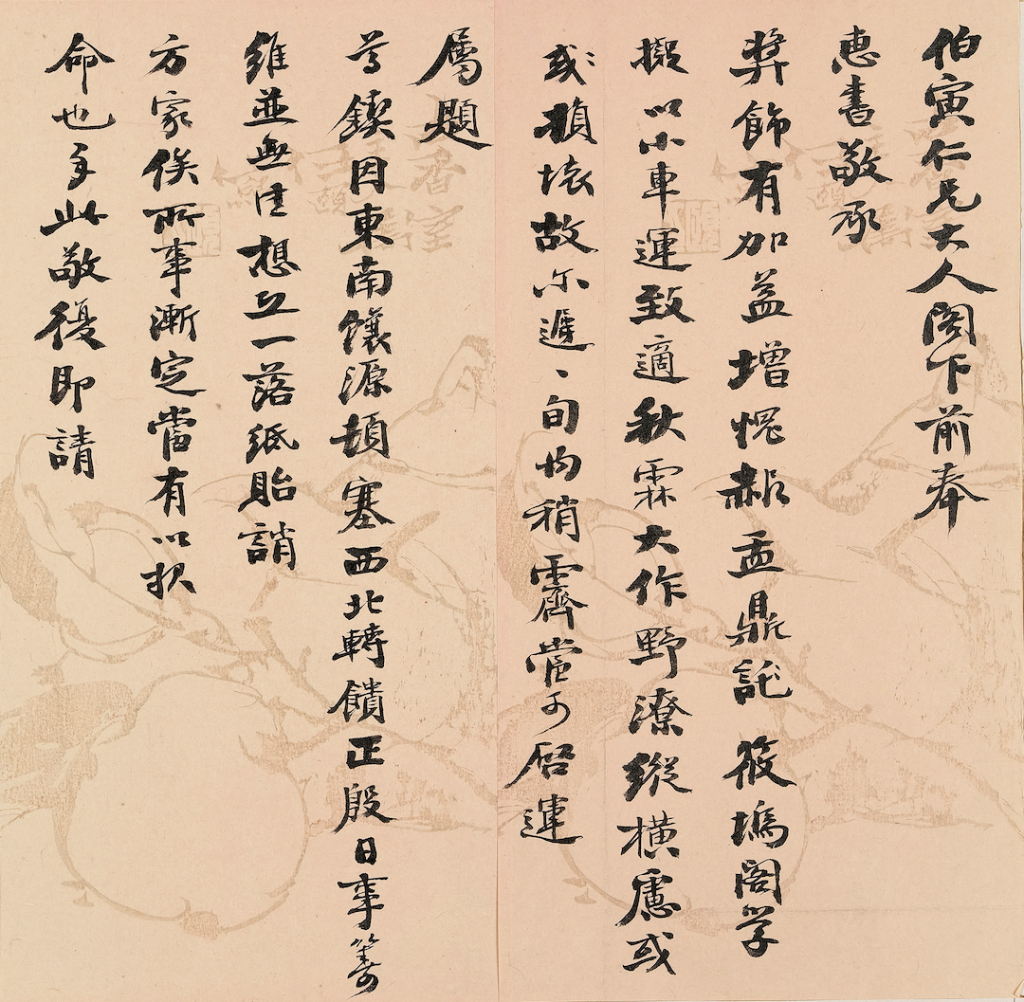 伯寅仁兄大人閣下前奉
惠書敬承
奬飾有加益增愧赧盂鼎託筱塢閣学
擬以小車運致適秋霖大作野潦縱橫慮或
或損壞故尔遲遲旬内稍霽當可啓運
屬題
鍥因東南饟源頓塞西北轉饋正殷日事籌
維並無佳想立一落紙貽誚
方家俟所事漸定當有以报
命也手此敬復即請